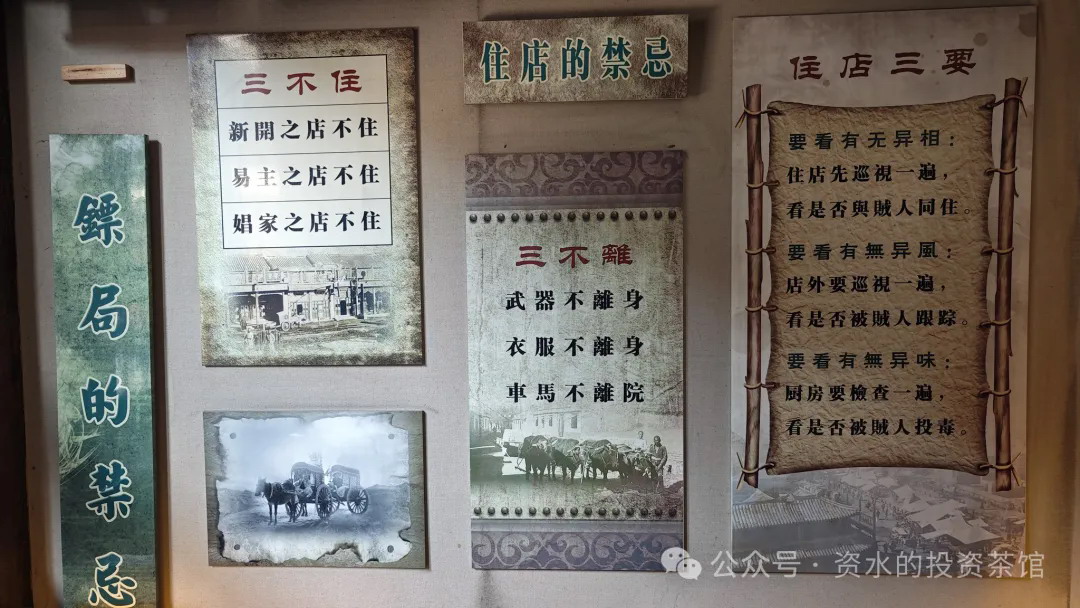 鏢局的禁忌
三不住
新開之店不住
易主之店不住
娼家之店不住
住店的禁忌
三不離
武器不離身
衣服不離身
車馬不離院
住店三要
要看有无异相：
住店先巡視一遍，
看是否與賊人同住。
要看有無异風：
店外要巡視一遍，
看是否被賊人跟踪。
要看有無异味：
厨房要檢查一遍，
看是否被賊人投毒。
公众号·资水的投资茶馆